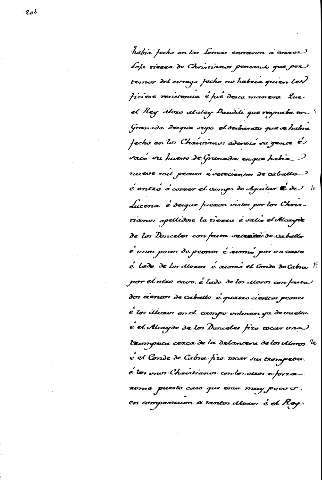 202
había fecho en las Lomas entraron á correr
tierra de Christianos pensando que por
temor del estrago fecho no habria quien les
ficiese resistencia é fué desta manera Que
el Rey Moro Muley Baudili que reynaba en
Granada desque supo el desbarato que se habia
fecho en los Christianos aderezó su gente é
sacó su hueste de Granada en que había
nueve mil peones é setecientos de caballo
é entró á correr el campo de Aguilar é de
Lucena é desque fueron vistos por los Chris-
tianos apellidose la tierra é salió el Alcayde
de los Donceles con fasta de caballo
é unos pocos de peones é asomó por un cabo
é lado de los Moros é asomó el Conde de Cabra
por el otro cavo é lado de los Moros con fasta
doscientos de caballo é quatro cientos peones
é los Moros en el campo volvian ya de vuelta
é el Alcayde de los Donceles fizo tocar una
trompeta cerca de la delantera de los Moros
é el Conde de Cabra fizo tocar sus trompetas
é los unos Christianos con los otros
puesto caso que eran muy pocos
en comparacion de tantos Moros é el Rey